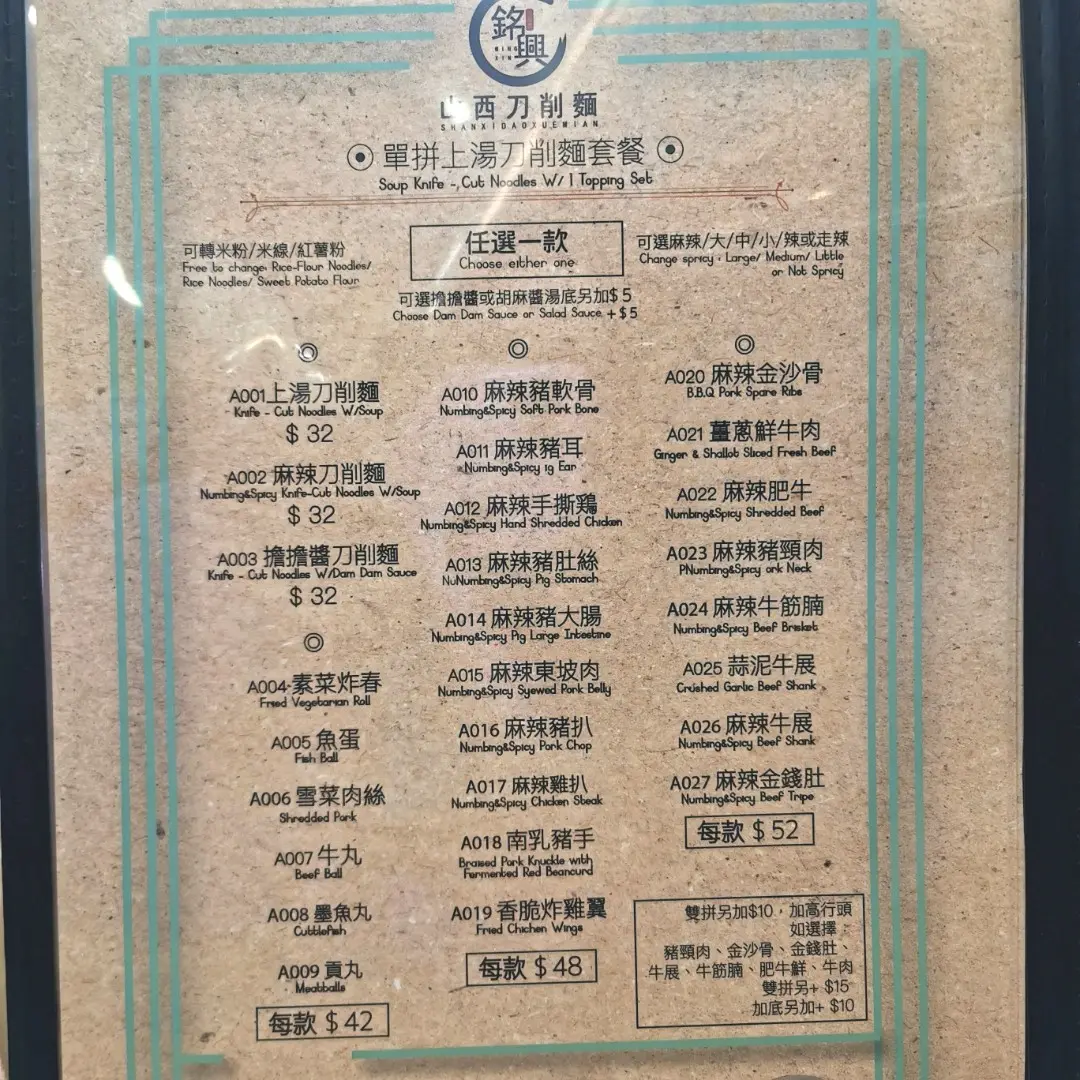 銘興
MING
XIN
山西刀削麵
SHANXIDAOXUEMIAN
單拼上湯刀削麵套餐
Soup Knife -, Cut Noodles W/ 1 Topping Set
可轉米粉/米線/紅薯粉
Free to change: Rice-Flour Noodles/
Rice Noodles/ Sweet Potato Flour
任選一款
Choose either one
可選麻辣/大/中/小/辣或走辣
Change spricy : Large/ Medium/ Little
or Not Spricy
可選擔擔醬或胡麻醬湯底另加$5
Choose Dam Dam Sauce or Salad Sauce +$5
A001上湯刀削麵
Knife - Cut Noodles W/Soup
$32
A002 麻辣刀削麵
Numbing&Spicy Knife-Cut Noodles W/Soup
$32
A003 擔擔醬刀削麵
Knife - Cut Noodles W/Dam Dam Sauce
$32
A004 素菜炸春
Fried Vegetarian Roll
A005 魚蛋
Fish Ball
A006 雪菜肉絲
Shredded Pork
A007 牛丸
Beef Ball
A008 墨魚丸
Cuttlefish
A009 貢丸
Meatballs
每款 $42
A010 麻辣豬軟骨
Numbing&Spicy Soft Pork Bone
A011 麻辣豬耳
Numbing&Spicy ig Ear
A012 麻辣手撕鷄
Numbing&Spicy Hand Shredded Chicken
A013 麻辣豬肚絲
NuNumbing&Spicy Pig Stomach
A014 麻辣豬大腸
Numbing&Spicy Pig Large Intestine
A015 麻辣東坡肉
Numbing&Spicy Syewed Pork Belly
A016 麻辣豬扒
Numbing&Spicy Pork Chop
A017 麻辣雞扒
Numbing&Spicy Chicken Steak
A018 南乳豬手
Braised Pork Knuckle with
Fermented Red Beancurd
A019 香脆炸雞翼
Fried Chichen Wings
每款 $48
A020 麻辣金沙骨
B.B.Q Pork Spare Ribs
A021 薑蔥鮮牛肉
Ginger & Shallot Sliced Fresh Beef
A022 麻辣肥牛
Numbing&Spicy Shredded Beef
A023 麻辣豬頸肉
PNumbing&Spicy ork Neck
A024 麻辣牛筋腩
Numbing&Spicy Beef Brisket
A025 蒜泥牛展
Crushed Garlic Beef Shank
A026 麻辣牛展
Numbing&Spicy Beef Shank
A027 麻辣金錢肚
Numbing&Spicy Beef Tripe
每款 $52
雙拼另加$10，加高行頭
如選擇：
豬頸肉、金沙骨、金錢肚、
牛展、牛筋腩、肥牛鮮、牛肉
雙拼另+ $15
加底另加+ $10